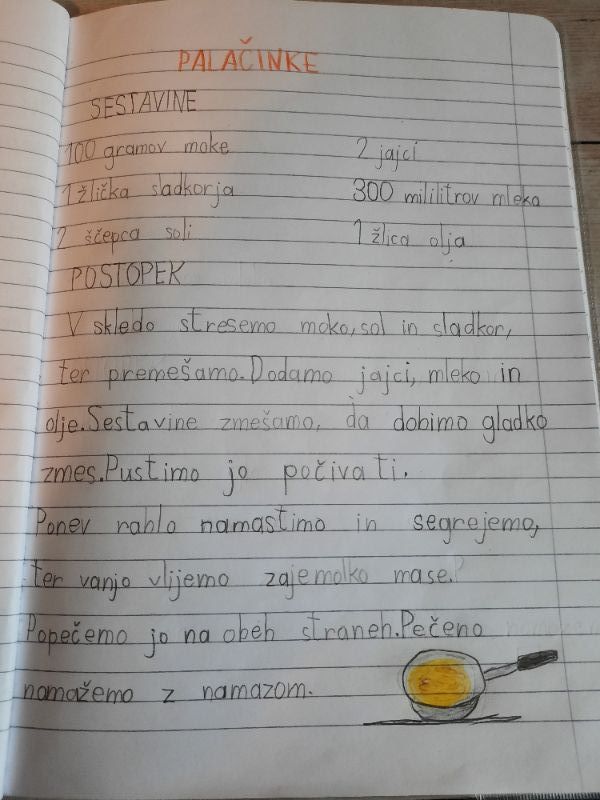 PALAČINKE
SESTAVINE
100 gramov moke 2 jajci
1 žlička sladkorja 300 mililitrov mleka
2 ščepca soli 1 žlica olja
POSTOPEK
V skledo stresemo moko, sol in sladkor,
ter premešamo. Dodamo jajci, mleko in
olje. Sestavine zmešamo, da dobimo gladko
zmes. Pustimo jo počivati.
Ponev rahlo namastimo in segrejemo,
ter vanjo vlijemo zajemolko mase.
Popečemo jo na obeh straneh. Pečeno
namažemo z namazom.